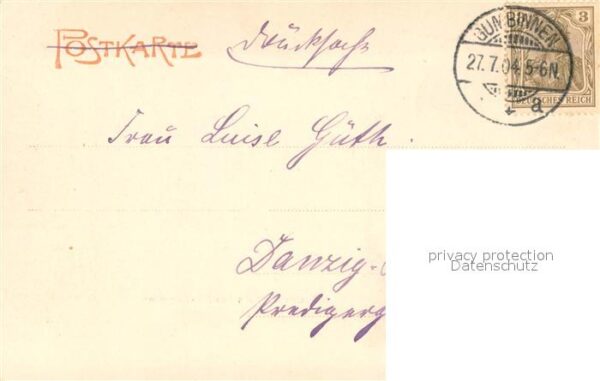 POSTKARTE Drucksache
3
GUMBINNEN
27.7.04.5-6N.
a
DEUTSCHES REICH
Frau Luise Güth
privacy protection
Datenschutz
Danzig-
Predigerg